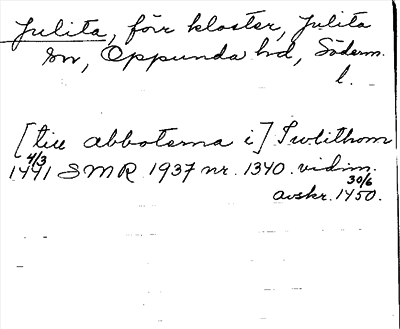 Julita, förr kloster, Julita
sn, Oppunda hd, Söderm.
l.
[till abboterna i] Swlithom
4/3
1441 SMR 1937 nr. 1340. vidim.
30/6
avskr. 1450.